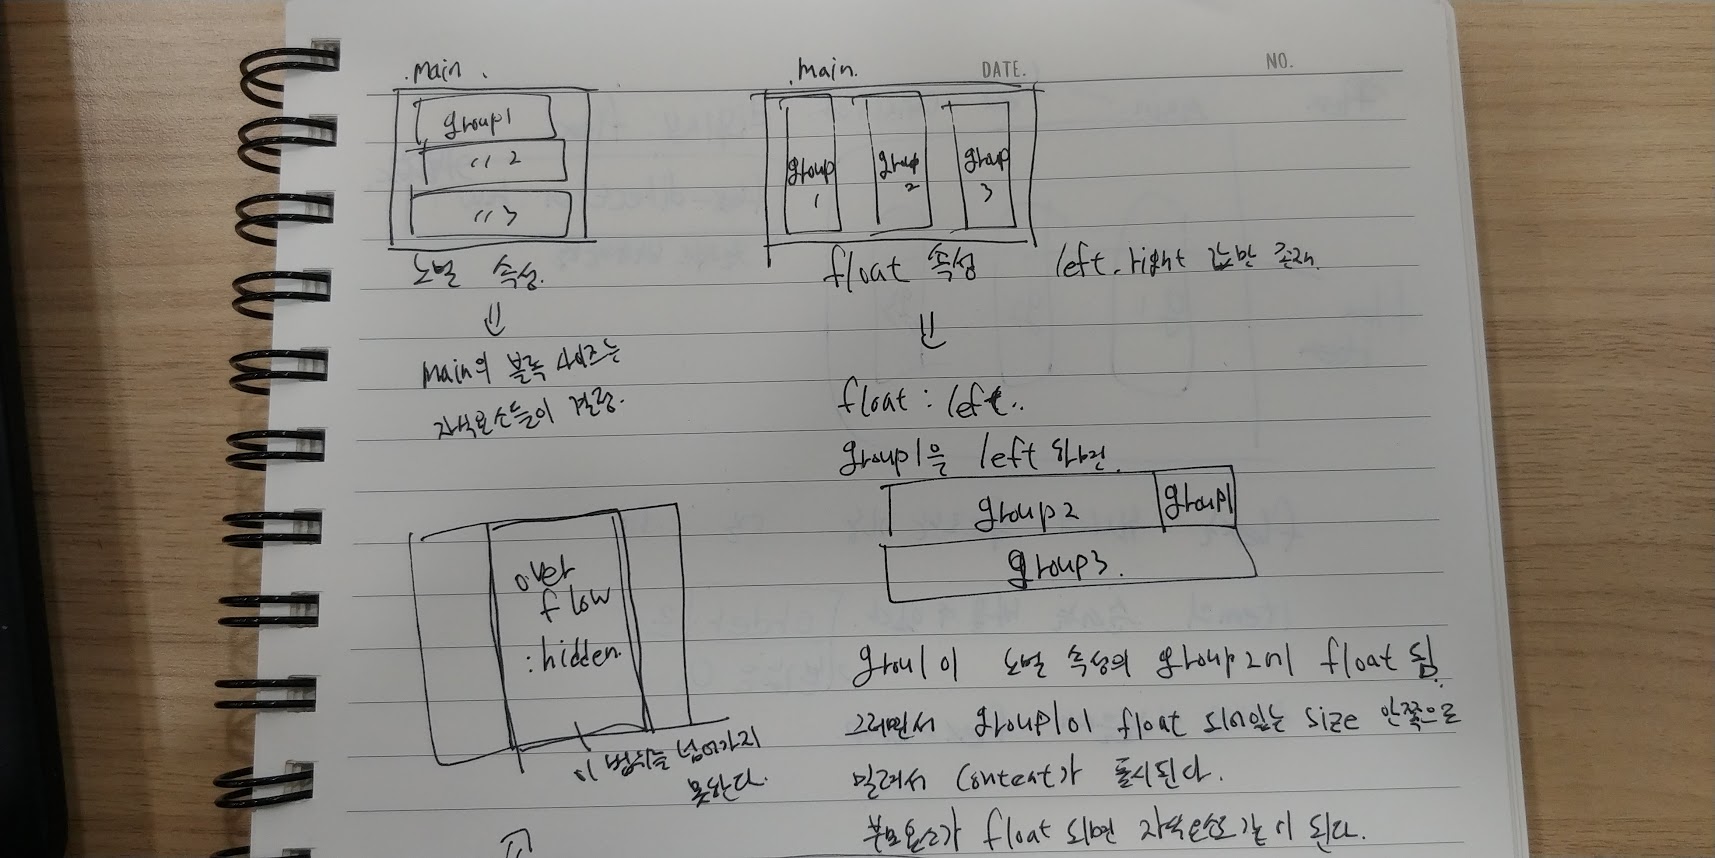 .Main.
group1
〃 2
〃 3
노멀 속성.
Main의 블록 사이즈는
자식요소들이 결정.
over
flow
:hidden.
이 범위는 넘어가지
못한다.
.Main.
DATE.
NO.
group
1
group
2
group
3
float 속성
left. right 값만 존재.
float : left..
group1을 left 하면.
group2
group1
group3.
grou1이 노멀 속성의 group2에 float 됨.
그러면서 group1이 float 되어있는 size 안쪽으로
밀려서 Content가 표시된다.
부모요소가 float 되면 자식요소도 같이 된다.